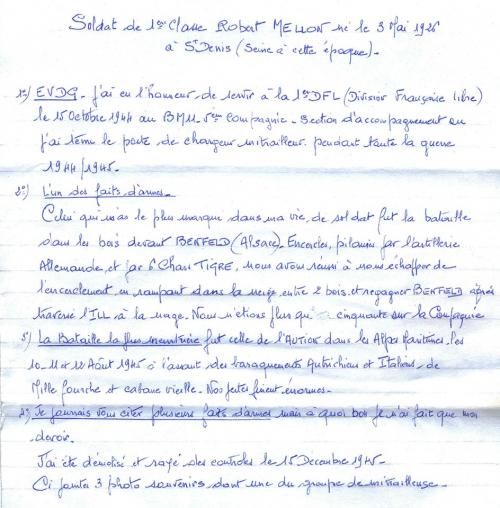 Soldat de 1ère Classe Robert MELLON né le 3 Mai 1926
à St Denis (Seine à cette époque)-
1°) EVDG - J'ai eu l'honneur de servir à la 1ère DFL (Division Française libre)
le 15 Octobre 1944 au BM11. 5ème Compagnie - Section d'accompagnement ou
j'ai tenu le poste de chargeur mitrailleur. pendant toute la guerre
1944/1945-
2°) L'un des faits d'armes-
Celui qui m'as le plus marqué dans ma vie, de soldat fut la bataille
dans les bois devant BENFELD (Alsace)- Encerclés, pilonnés par l'artillerie
Allemande et par 6 Chars TIGRE, nous avons réussi à nous échapper de
l'encerclement en rampant dans la neige entre 2 bois et regagner BENFELD après
traversé l'ILL à la nage. Nous n'étions plus qu' cinquante sur la Compagnie
3°) La Bataille la plus meurtrière fut celle de l'AUTION dans les Alpes Maritimes. Les
10-11 et 12 Août 1945 à l'assaut des baraquements Autrichiens et Italiens, de
Mille fourche et cabane vieille. Nos pertes furent énormes-
4°) Je pourrais vous citer plusieurs faits d'armes mais à quoi bon je n'ai fait que mon
devoir.
J'ai été démobilisé et rayé des contrôles le 15 Décembre 1945-
Ci jointes 3 photo souvenirs dont une du groupe de mitrailleuse-